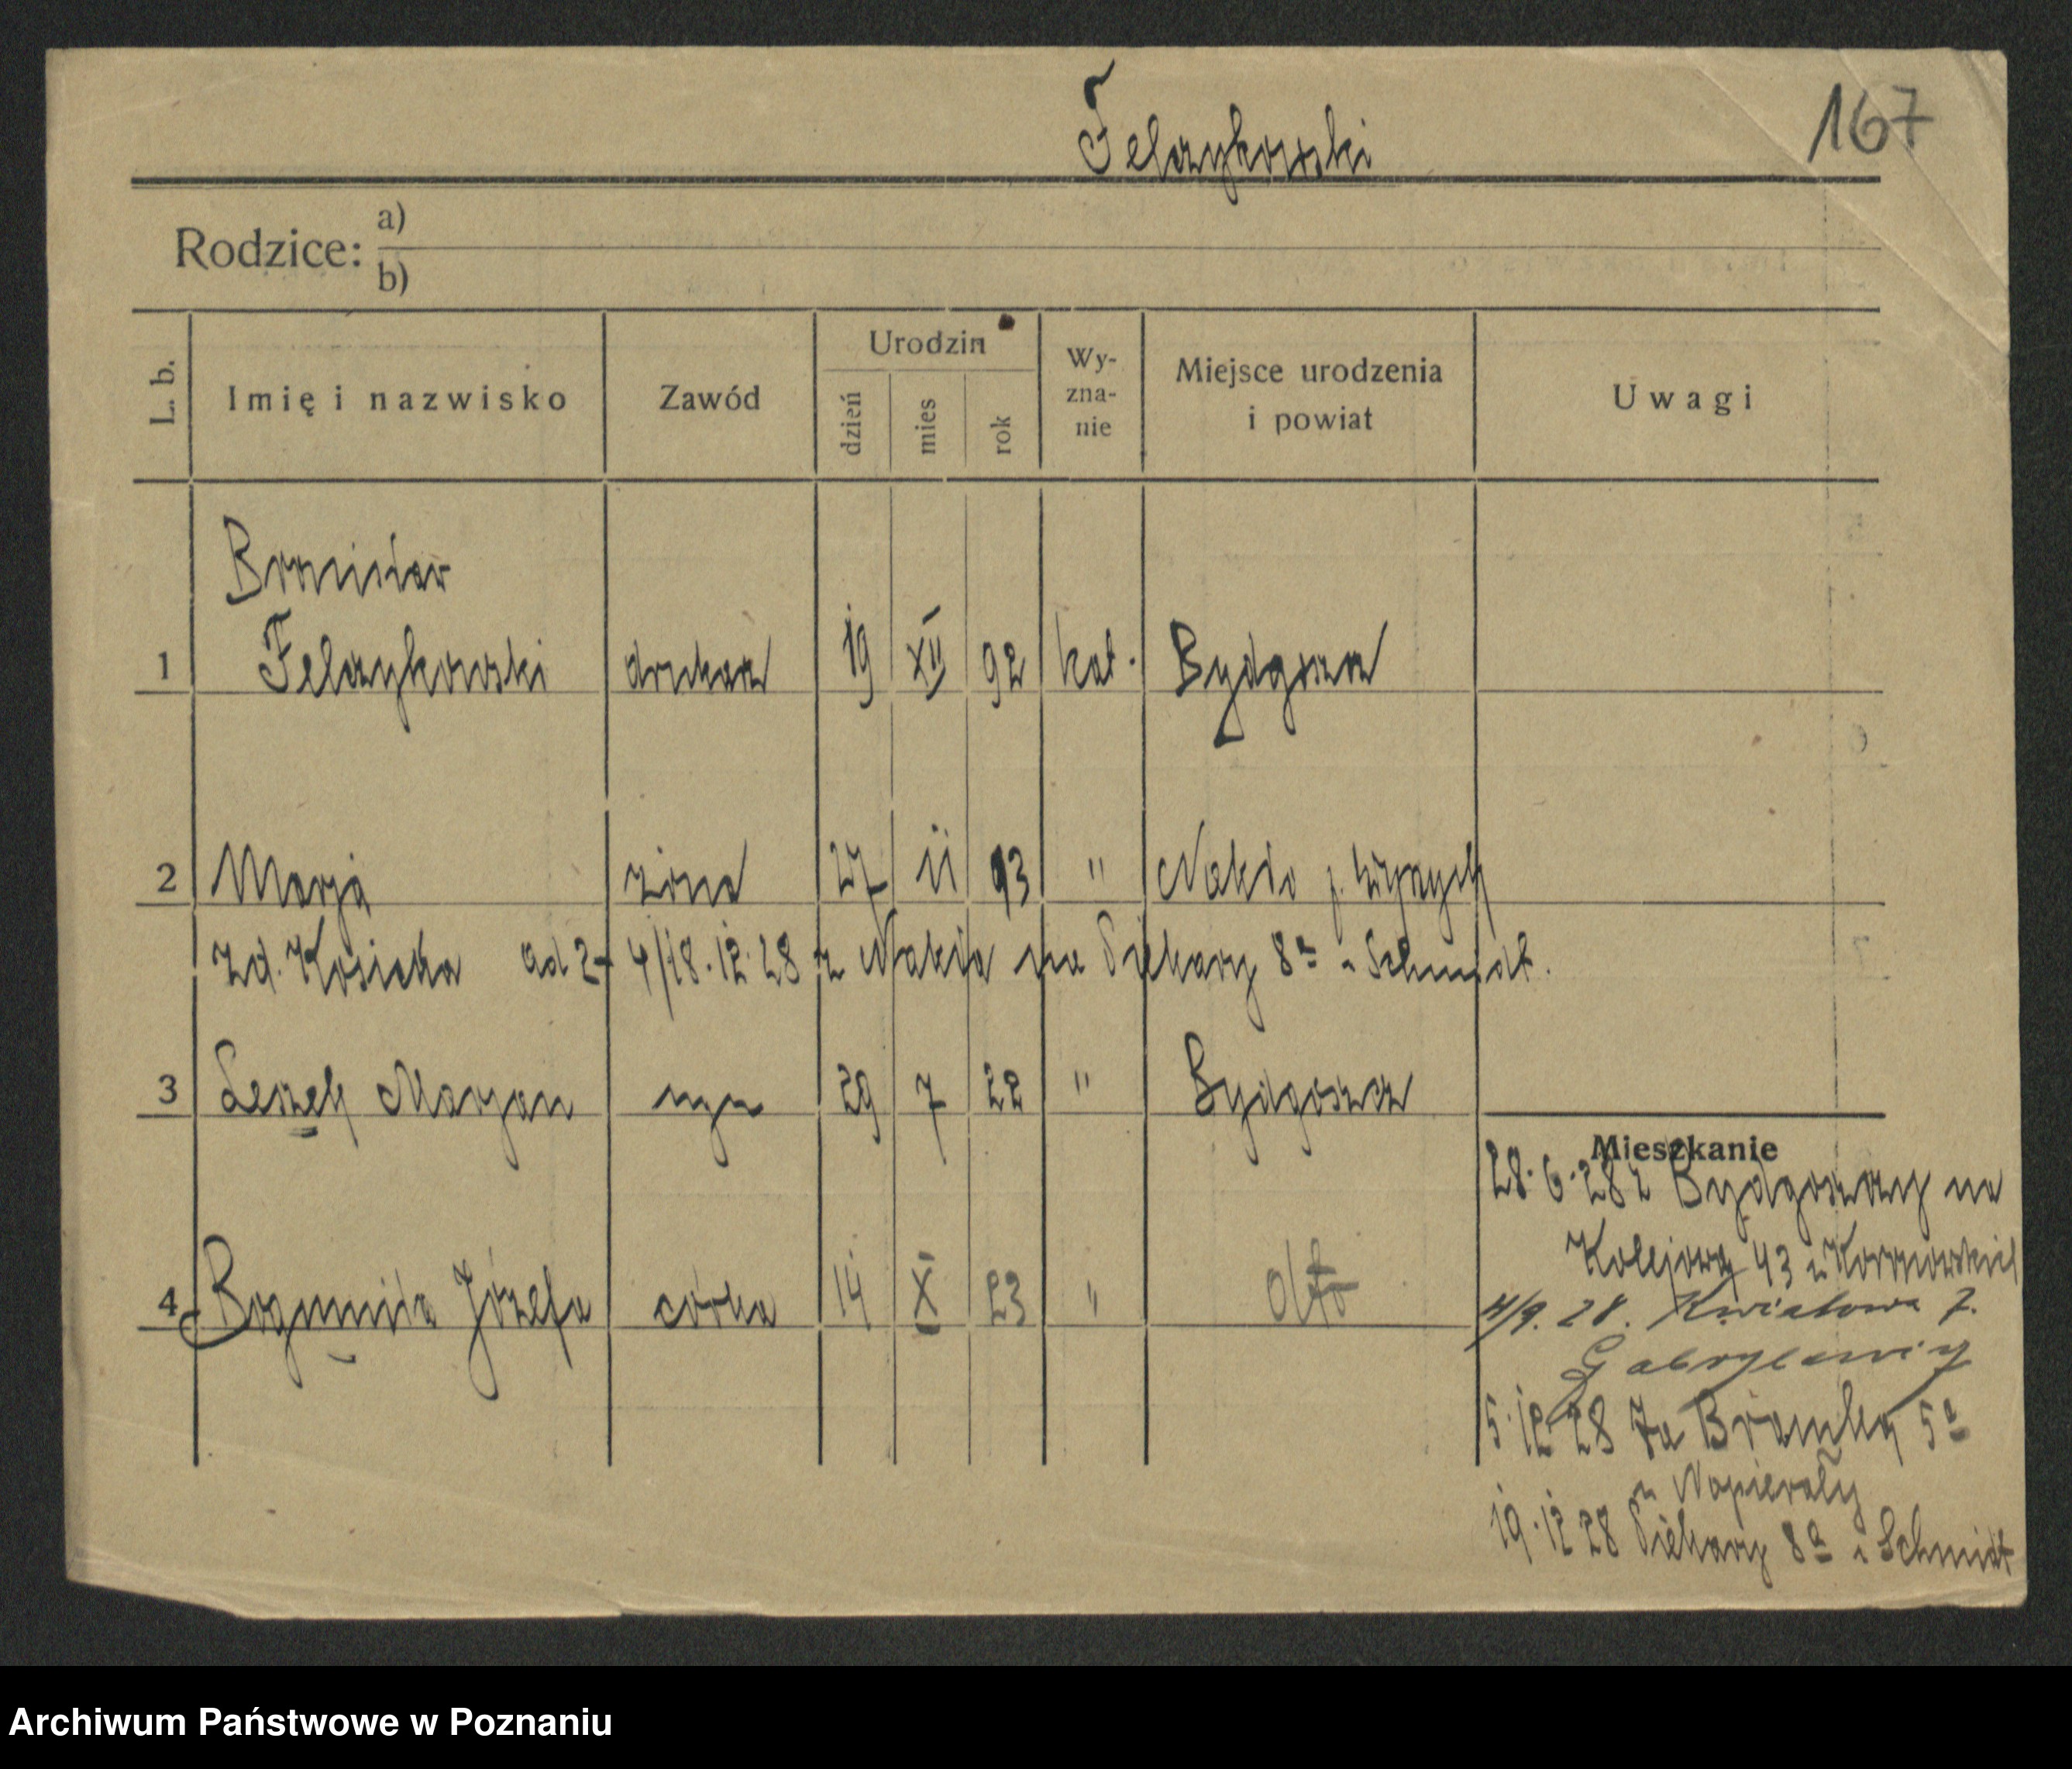 Felczykowski
167
Rodzice:
a)
b)
L. b.
Imię i nazwisko
Zawód
Urodzin
dzień
mies
rok
Wy-
zna-
nie
Miejsce urodzenia
i powiat
Uwagi
Bronisław
1 Felczykowski drukarz 19 XII 92 kat. Bydgoszcz
2 Marja żona 27 II 93 " Nakło p. Wyrzysk
zd. Kosicka ad 2-4/18.12.28 z Nakła na Piekary 8a u Schmidt.
3 Leszek Marjan syn 29 7 22 " Bydgoszcz
Mieszkanie
28.6.28 z Bydgoszczy na
Kolejową 43 u
4 Bogumiła Józefa córka 14 X 23 " dto
11/9. 28. Kwiatowa 7.
Gabrylewicz
5.12 28 Za Bramką 5a
u Napierały
19.12 28 Piekary 8a u Schmidt
Archiwum Państwowe w Poznaniu